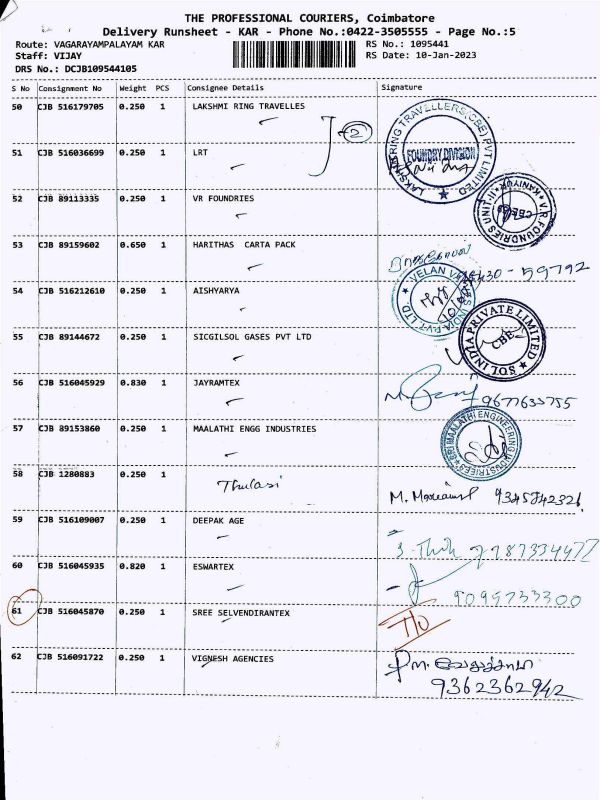 THE PROFESSIONAL COURIERS, Coimbatore
Delivery Runsheet - KAR - Phone No.:0422-3505555 - Page No.:5
Route: VAGARAYAMPALAYAM KAR RS No.: 1095441
Staff: VIJAY RS Date: 10-Jan-2023
DRS No.: DCJB109544105
S No Consignment No Weight PCS Consignee Details Signature
50 CJB 516179705 0.250 1 LAKSHMI RING TRAVELLES
2
LAKSHMI RING TRAVELLERS (CBE) PVT LIMITED
FOUNDRY DIVISION
51 CJB 516036699 0.250 1 LRT
52 CJB 89113335 0.250 1 VR FOUNDRIES
V.R. FOUNDRIES UNIT-II KANIYUR
CBE
53 CJB 89159602 0.650 1 HARITHAS CARTA PACK
59792
54 CJB 516212610 0.250 1 AISHYARYA
55 CJB 89144672 0.250 1 SICGILSOL GASES PVT LTD
SOL INDIA PRIVATE LIMITED
CBE
56 CJB 516045929 0.830 1 JAYRAMTEX
9677633755
57 CJB 89153860 0.250 1 MAALATHI ENGG INDUSTRIES
SRI MAALATHI ENGINEERING INDUSTRIES
58 CJB 1280883 0.250 1 Thulasi
59 CJB 516109007 0.250 1 DEEPAK AGE
60 CJB 516045935 0.820 1 ESWARTEX
9099733300
61 CJB 516045870 0.250 1 SREE SELVENDIRANTEX
62 CJB 516091722 0.250 1 VIGNESH AGENCIES
9362362942